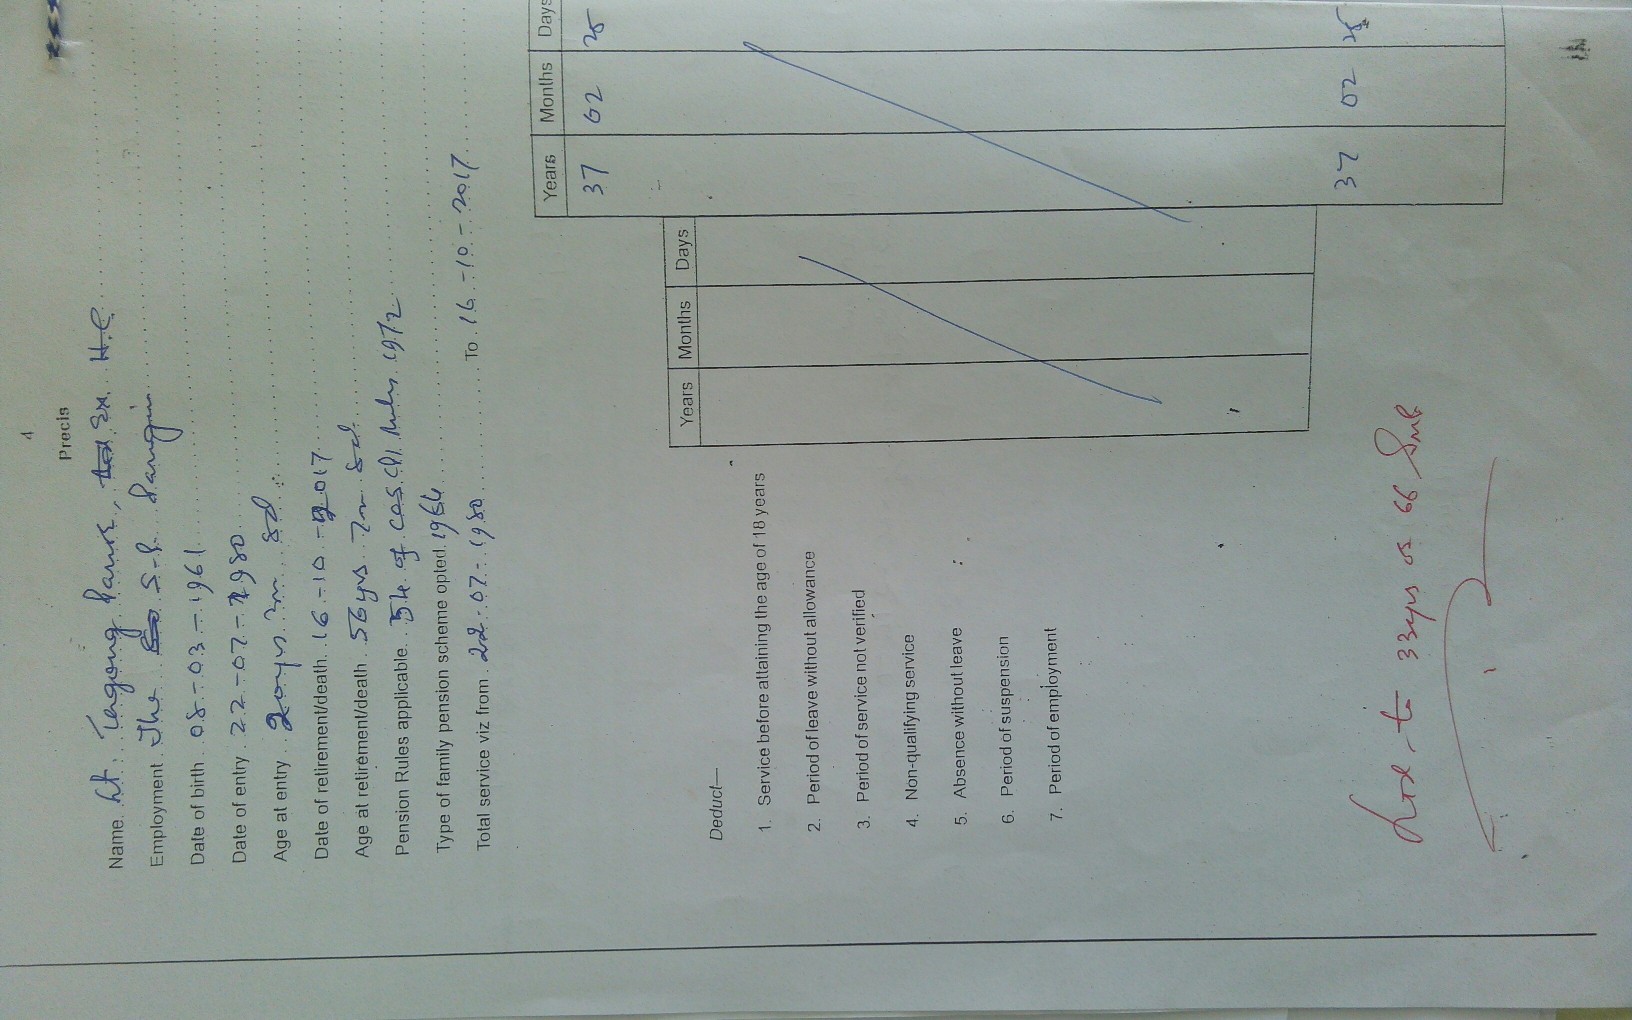 4
Precis
Name Lt. Tagong Ex. H.C
Employment The S.P.
Date of birth 08-03-1961
Date of entry 22-07-1980
Age at entry 20yrs 8d
Date of retirement/death 16-10-2017
Age at retirement/death 56yrs 7m 8d
Pension Rules applicable 54 of CCS (P) Rules 1972
Type of family pension scheme opted 1964
Total service viz from 22-07-1980 To 16-10-2017
Years Months Days
37 02 25
Years Months Days
Deduct—
1. Service before attaining the age of 18 years
2. Period of leave without allowance
3. Period of service not verified
4. Non-qualifying service
5. Absence without leave
6. Period of suspension
7. Period of employment
37 02 25
to 33yrs or 66